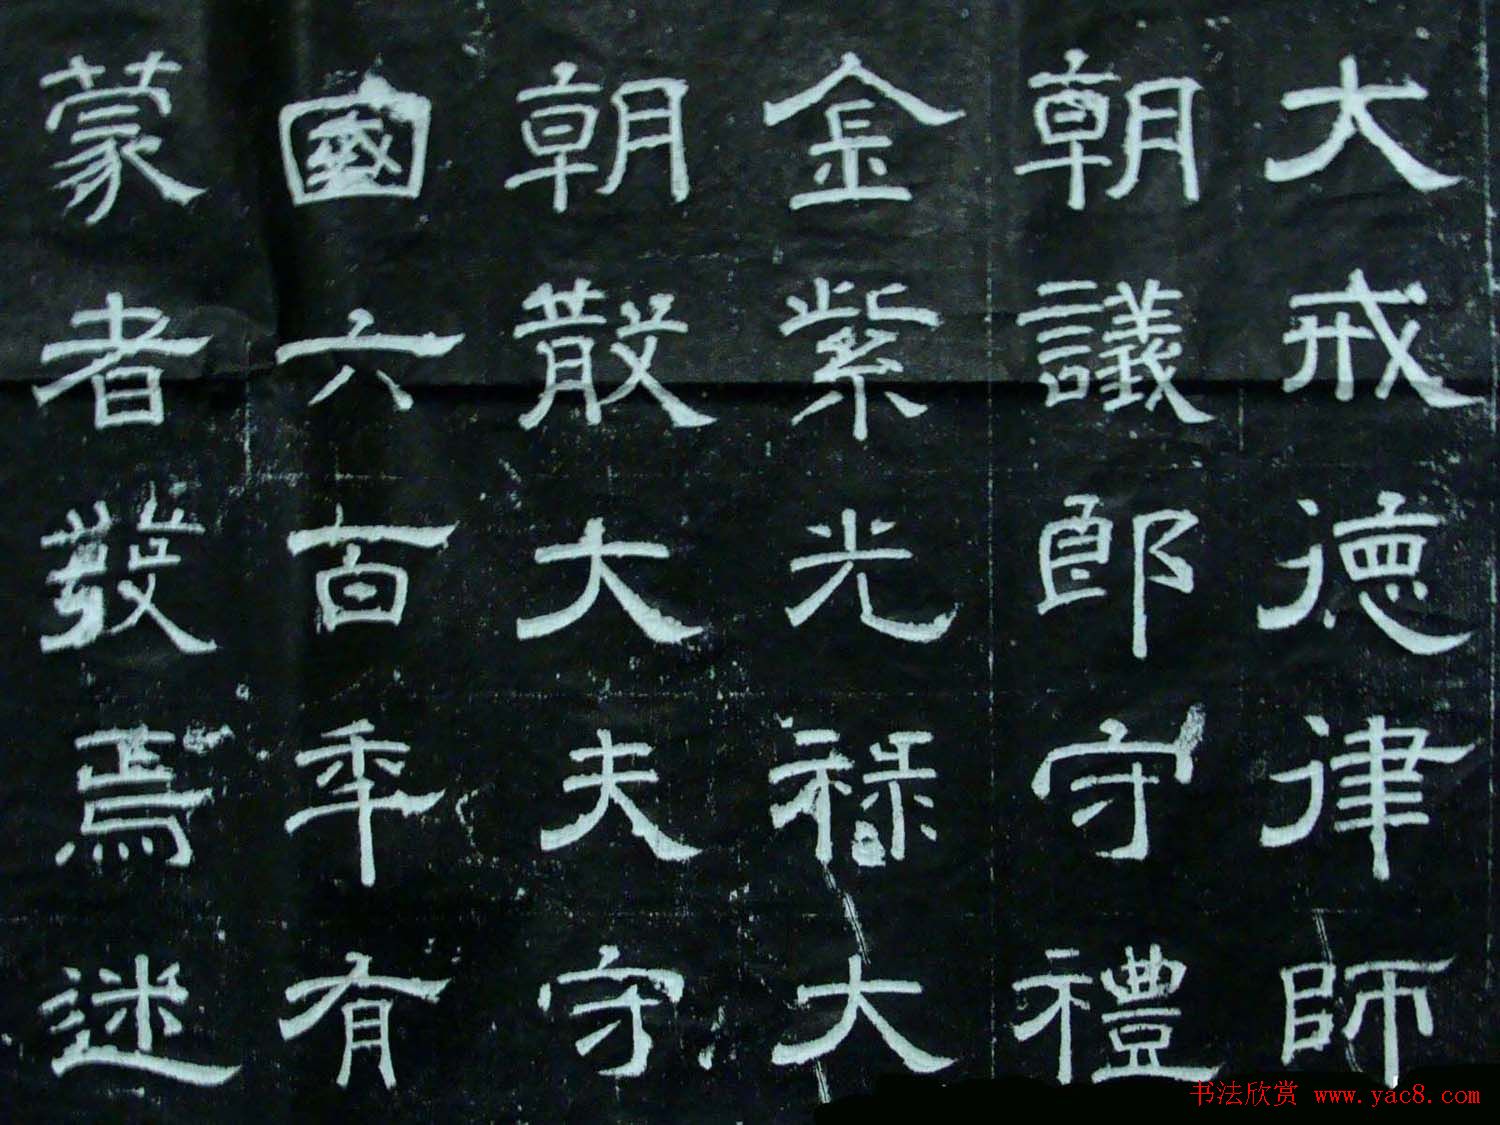 大戒德律師
朝議郎守禮
金紫光祿大
朝散大夫守
國六百年有
蒙者發焉迷
书法欣赏 www.yac8.com